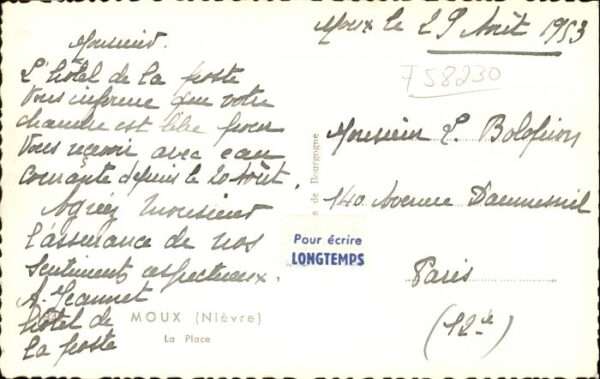 Moux le 29 Août 1953
758230
Monsieur.
L'hôtel de la poste
Vous informe que votre
chambre est libre pour
Vous recevoir avec eau
Courante depuis le 20 Août.
Agréez Monsieur
l'assurance de nos
Sentiments respectueux.
A. Jeannet
hôtel de
la poste
Monsieur L.
140 Avenue Daumesnil
Paris
(12e)
de Bourgogne
Pour écrire
LONGTEMPS
MOUX (Nièvre)
La Place